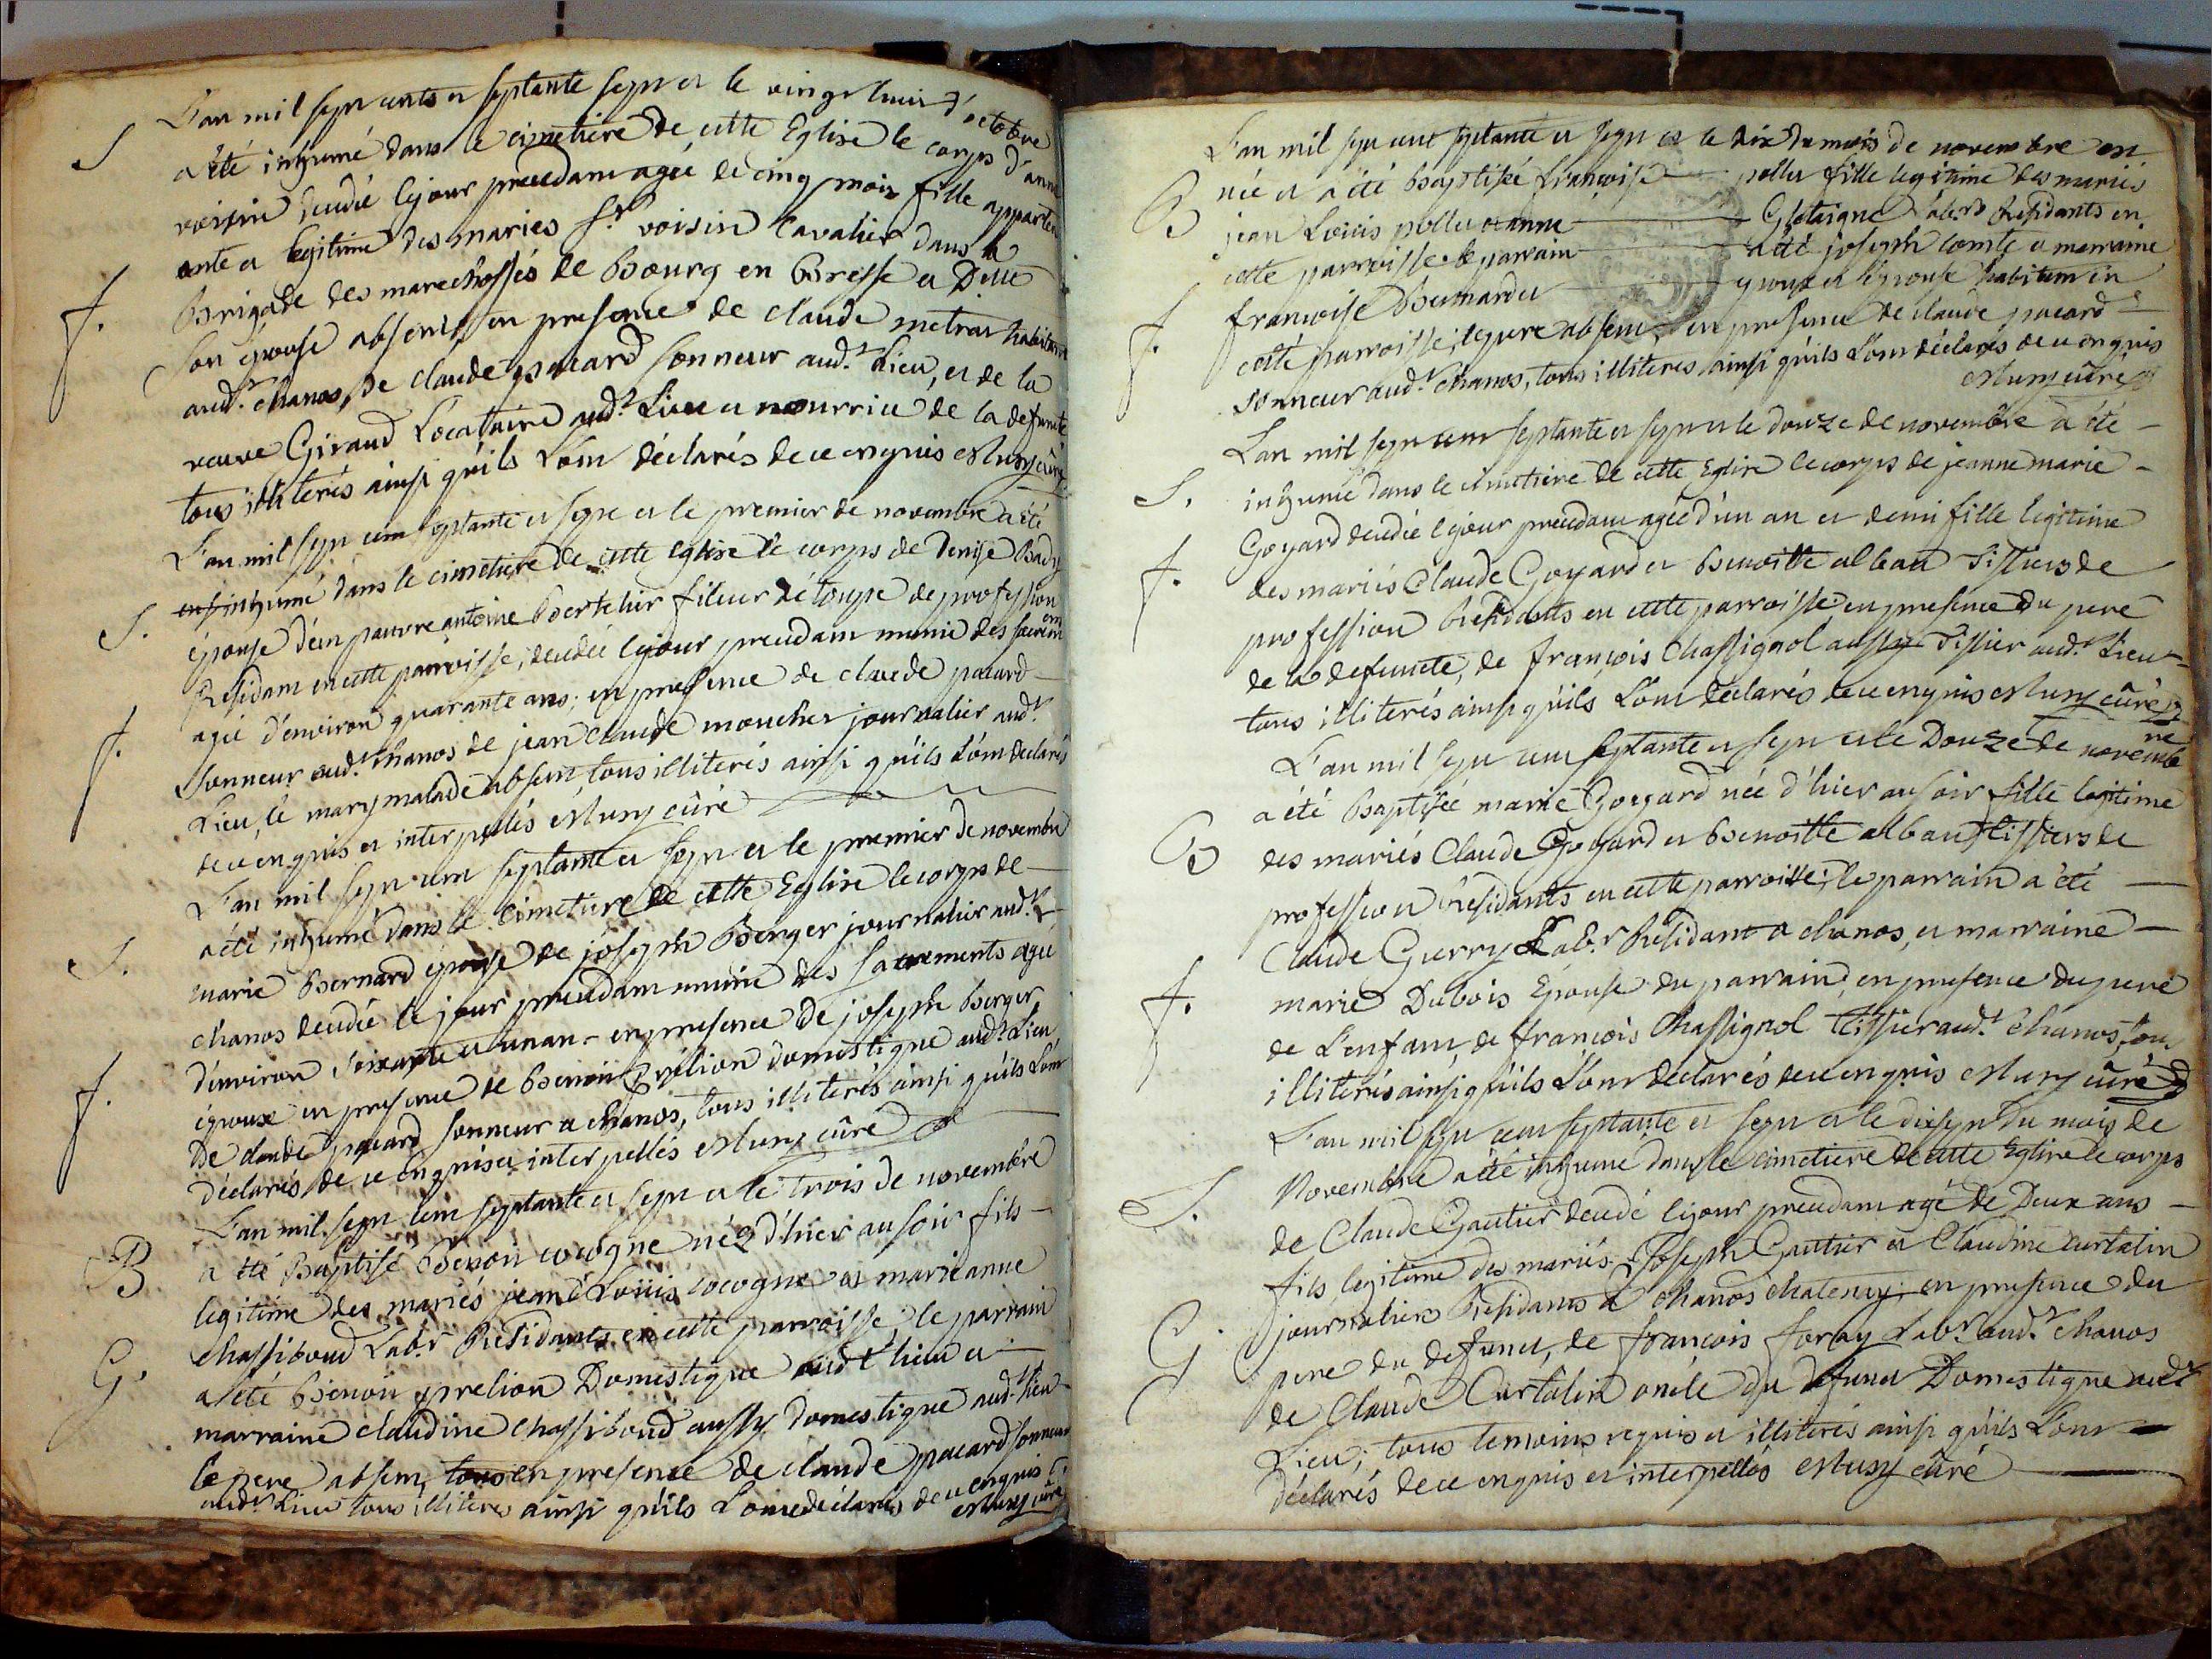 L'an mil sept cents et septante sept et le vingt huit d'octobre
S a été inhumé dans le cimetiere de cette Eglise le corps d'anne
voisin decedée le jour precedam agée de cinq mois fille apparten
ante et legitime des maries Sr voisin Cavalier dans la
f. Brigade des marechossés de Bourg en Bresse et Delle
son épouse absents en presence de claude metrat habitant
audt chanos, de claude pacard sonneur audt Lieu, et de la
veuve Giraud Locataire audt Lieu et nourrice de la defuncte
tous illiterés ainsi qu'ils L'ont déclarés de ce enquis cluny curé
L'an mil sept cent septante et sept et le premier de novembre a été
S. inhumé dans le cimetiere de cette Eglise le corps de Denise Bady
épouse d'un pauvre antoine Bertelier fileur d'étoupe de profession
Residant en cette parroisse, decedée le jour precedam munie des sacrem
ents
f. agée d'environ quarante ans; en presence de claude pacard
sonneur audt chanos de jean claude mouches journalier audt
Lieu, le mary malade absent tous illiterés ainsi qu'ils L'ont declarés
de ce enquis et interpellés cluny curé
L'an mil sept cent septante et sept et le premier de novembre
a été inhumé dans le cimetiere de cette Eglise le corps de
S. marie Bernard épouse de joseph Berger journalier audt
chanos decedée le jour precedam munie des sacrements agée
d'environ soixante et un an - en presence de joseph berger
f. époux en presence de Benoit prelion domestique audt Lieu
De claude pacard sonneur a chanos, tous illiterés ainsi qu'ils L'ont
Déclarés de ce enquis et interpellés cluny curé
L'an mil sept cent septante et sept et le trois de novembre
B a été Baptisé Benoit cocogne néz d'hier au soir fils
legitime des mariés jean Loüis cocogne et marie anne
chassiboud Labr Residants en cette parroisse le parrain
G. a été Benoit prelion Domestique audt lieu et
marraine claudine chassiboud aussy domestique audt lieu
le pere absent, en presence de claude pacard sonneur
audt Lieu tous illiterés ainsi qu'ils L'ont declarés de ce enquis
cluny curé
L'an mil sept cent septante et sept et le dix du mois de novembre est
B née et a été Baptisée françoise pollet fille legitime des mariés
jean Loüis pollet et anne Labrs Residants en
cette parroisse le parrain a été joseph comte et marraine
françoise Bernardet épouse habitant en
f. cette parroisse; le pere absent, en presence de claude pacard
sonneur audt chanos, tous illiterés ainsi qu'ils L'ont déclarés de ce enquis
cluny curé
L'an mil sept cent septante et sept et le douze de novembre a été
S. inhumé dans le cimetiere de cette Eglise le corps de jeanne marie
Goyard decedée le jour precedam agée d'un an et demi fille legitime
f. des mariés Claude Goyard et Benoitte alban Tissiers de
profession Residants en cette parroisse en presence du pere
de la defuncte, de françois Chassignol aussy Tissier audt Lieu
tous illiterés ainsi qu'ils L'ont déclarés de ce enquis cluny curé
L'an mil sept cent septante et sept et le Douze de novemb
re
a été Baptisée marie Goyard née d'hier au soir fille legitime
B des mariés Claude Goyard et Benoitte alban tissiers de
profession Residants en cette parroisse; le parrain a été
Claude Guerry Labr Residant a chanos, et marraine
f. marie Dubois Epouse du parrain, en presence du pere
de L'enfant, de françois Chassignol Tissier audt Chanos, tous
illiterés ainsi qu'ils L'ont declarés de ce enquis cluny curé
L'an mil sept cent septante et sept et le dix sept du mois de
S. Novembre a été inhumé dans le cimetiere de cette Eglise le corps
de Claude Gautier decedé le jour precedam agé de Deux ans
fils legitime des mariés Joseph Gautier et Claudine curtalin
G. journaliers Residants a Chanos chatenay; en presence du
pere du defunct, de françois foray Labr audt Chanos
de Claude Curtalin oncle du defunct Domestique audt
Lieu; tous temoins requis et illiterés ainsi qu'ils L'ont
déclarés de ce enquis et interpellés cluny curé